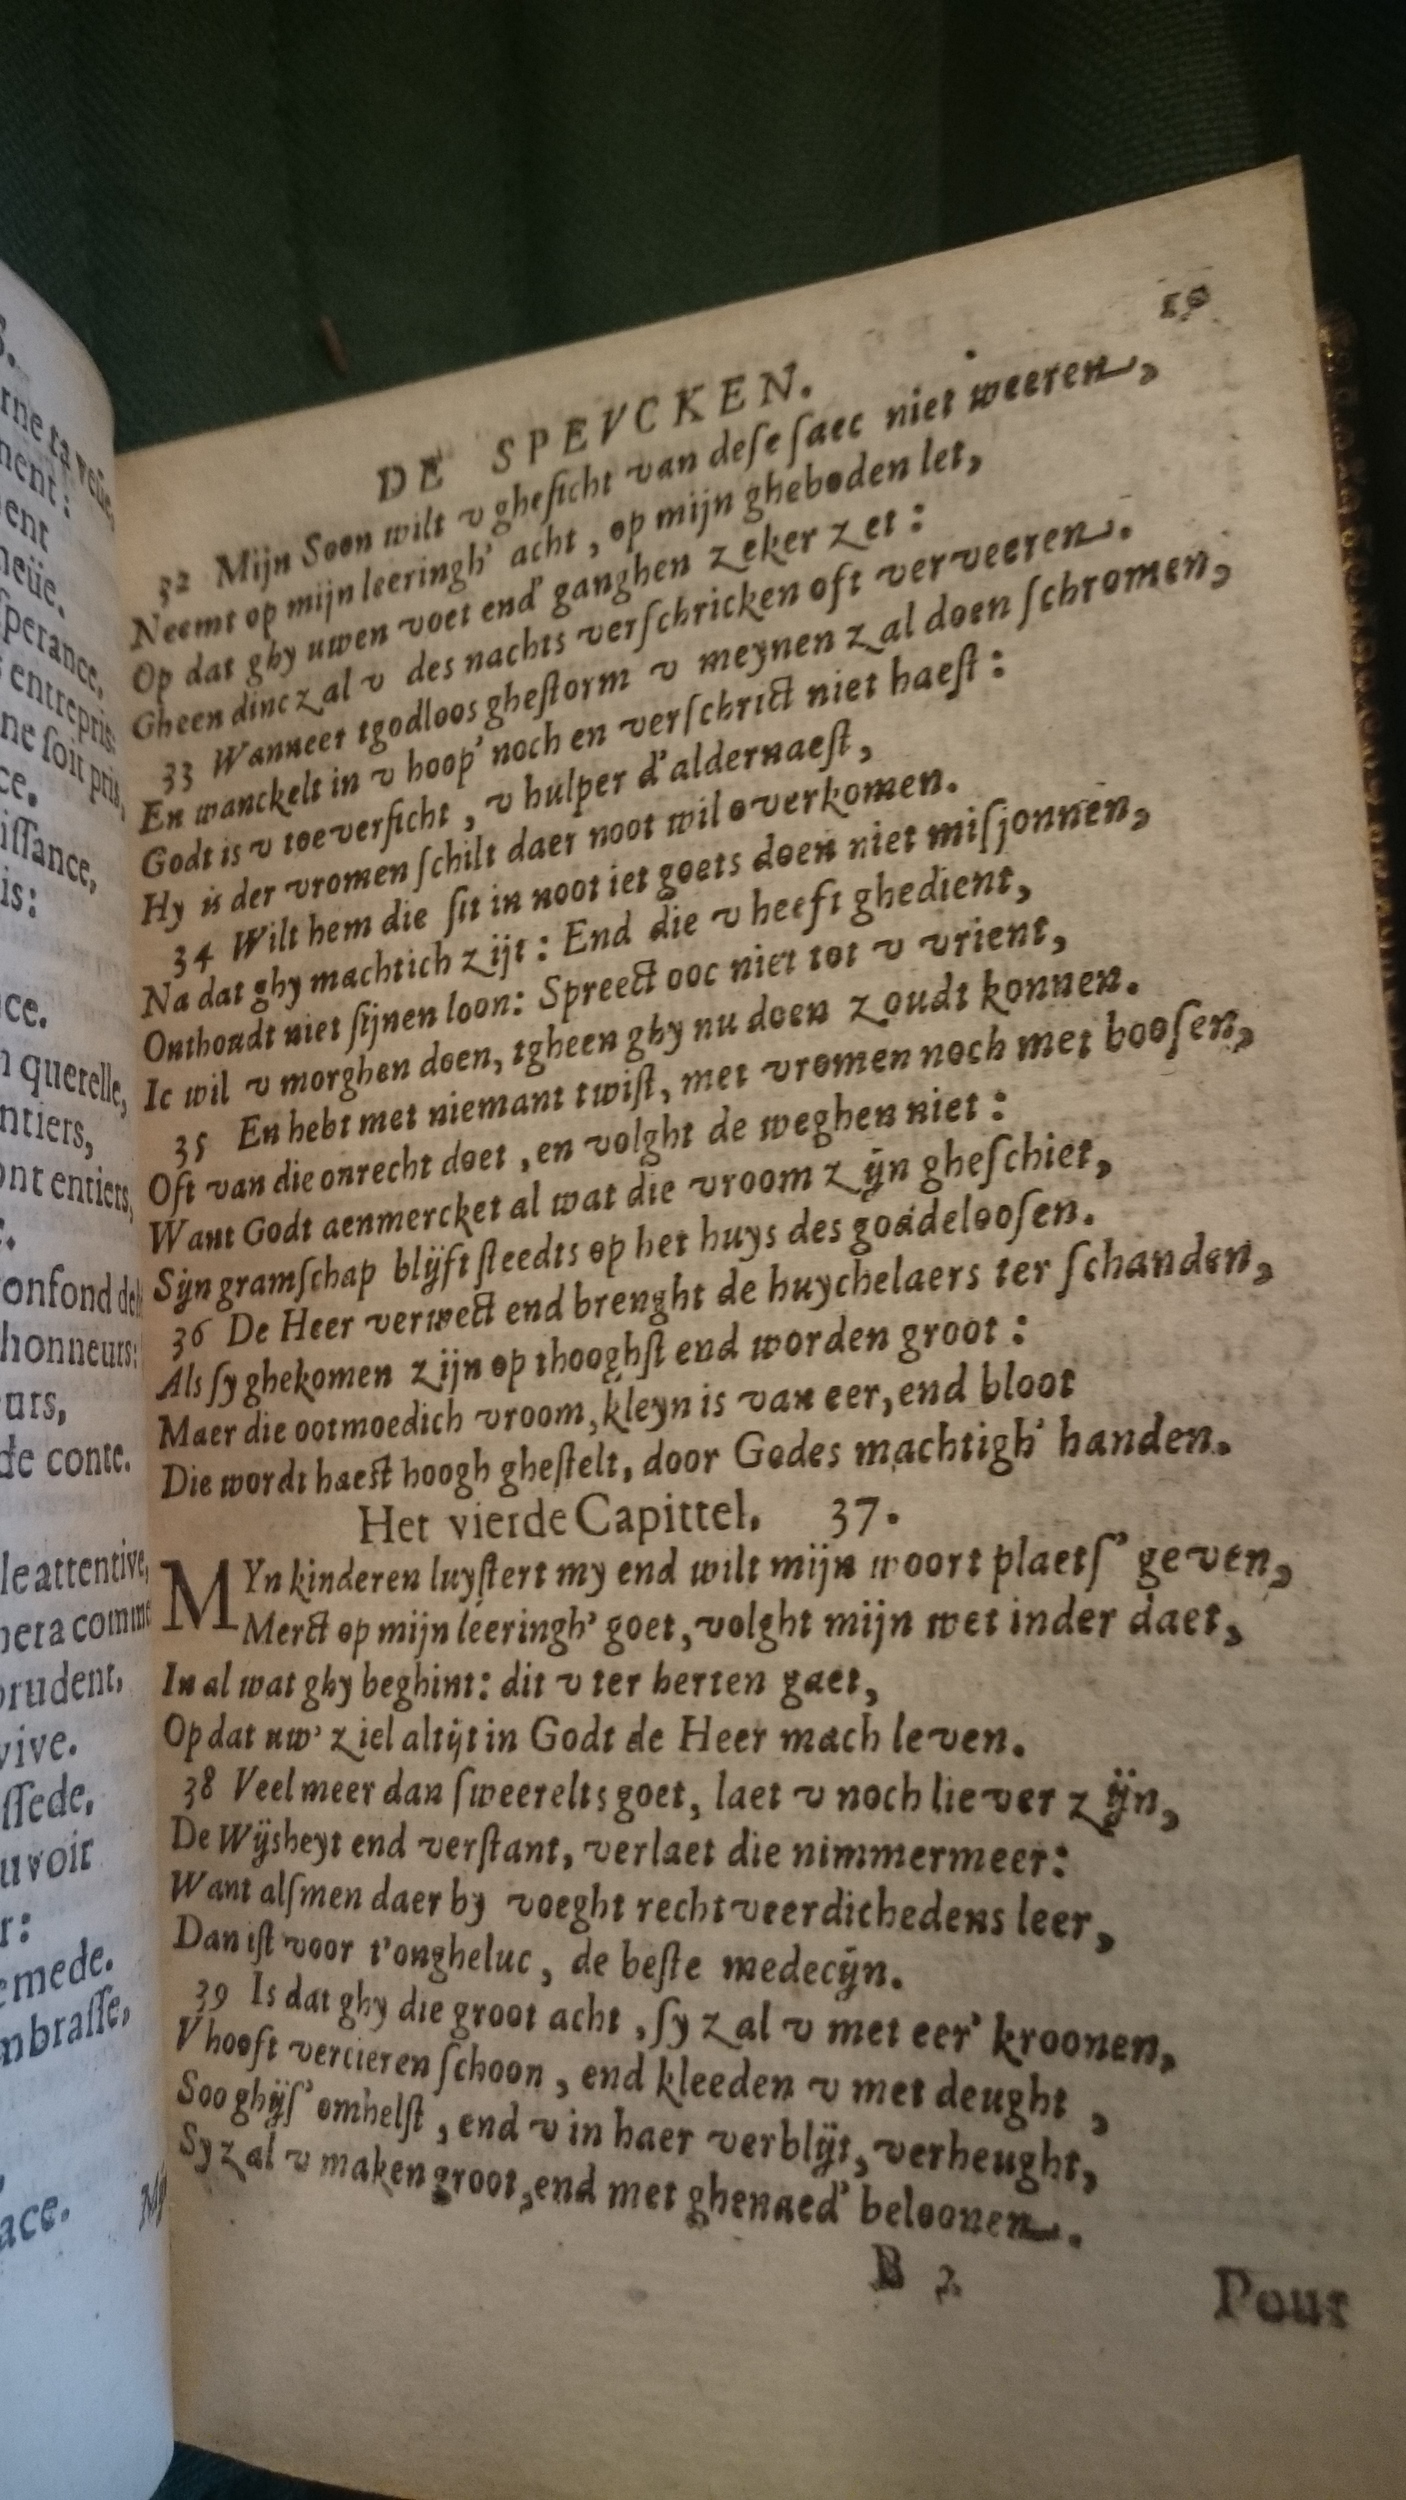 rne ta veüe,
nent:
ent
neüe.
sperance,
entrepris:
ne soit pris,
ce.
issance,
is:
ce.
querelle,
ntiers,
ont entiers,
onfond
honneurs:
urs,
de conte.
le attentive,
era comme
prudent,
vive.
ssede,
uvoir
r:
emede.
nbrasse,
ace.
19
DE SPEVCKEN.
32 Mijn Soon wilt v gheſicht van deſe ſaec niet weeren,
Neemt op mijn leeringh' acht, op mijn gheboden let,
Op dat ghy uwen voet end' ganghen zeker zet:
Gheen dinc zal v des nachts verſchricken oft verveeren.
33 Wanneer tgodloos gheſtorm v meynen zal doen ſchromen,
En wanckelt in v hoop' noch en verſchrict niet haeſt:
Godt is v toeverſicht, v hulper d'aldernaeſt,
Hy is der vromen ſchilt daer noot wil overkomen.
34 Wilt hem die ſit in noot iet goets doen niet miſjonnen,
Na dat ghy machtich zijt: End die v heeft ghedient,
Onthoudt niet ſijnen loon: Spreect ooc niet tot v vrient,
Ic wil v morghen doen, tgheen ghy nu doen zoudt konnen.
35 En hebt met niemant twiſt, met vromen noch met booſen,
Oft van die onrecht doet, en volght de weghen niet:
Want Godt aenmercket al wat die vroom zijn gheſchiet,
Sijn gramſchap blijft ſteedts op het huys des goddelooſen.
36 De Heer verwect end brenght de huychelaers ter ſchanden,
Als ſy ghekomen zijn op thooghſt end worden groot:
Maer die ootmoedich vroom, kleyn is van eer, end bloot
Die wordt haeſt hoogh gheſtelt, door Godes machtigh' handen.
Het vierde Capittel. 37.
MYn kinderen luyſtert my end wilt mijn woort plaetſ' geven,
Merct op mijn leeringh' goet, volght mijn wet inder daet,
In al wat ghy beghint: dit v ter herten gaet,
Op dat uw' ziel altijt in Godt de Heer mach leven.
38 Veel meer dan ſweerelts goet, laet v noch liever zijn,
De Wijsheyt end verſtant, verlaet die nimmermeer:
Want alſmen daer by voeght rechtveerdichedens leer,
Dan iſt voor t'ongheluc, de beſte medecijn.
39 Is dat ghy die groot acht, ſy zal v met eer' kroonen,
V hooft vercieren ſchoon, end kleeden v met deught,
Soo ghijſ' omhelſt, end v in haer verblijt, verheught,
Sy zal v maken groot, end met ghenaed' beloonen.
B 2
Pour